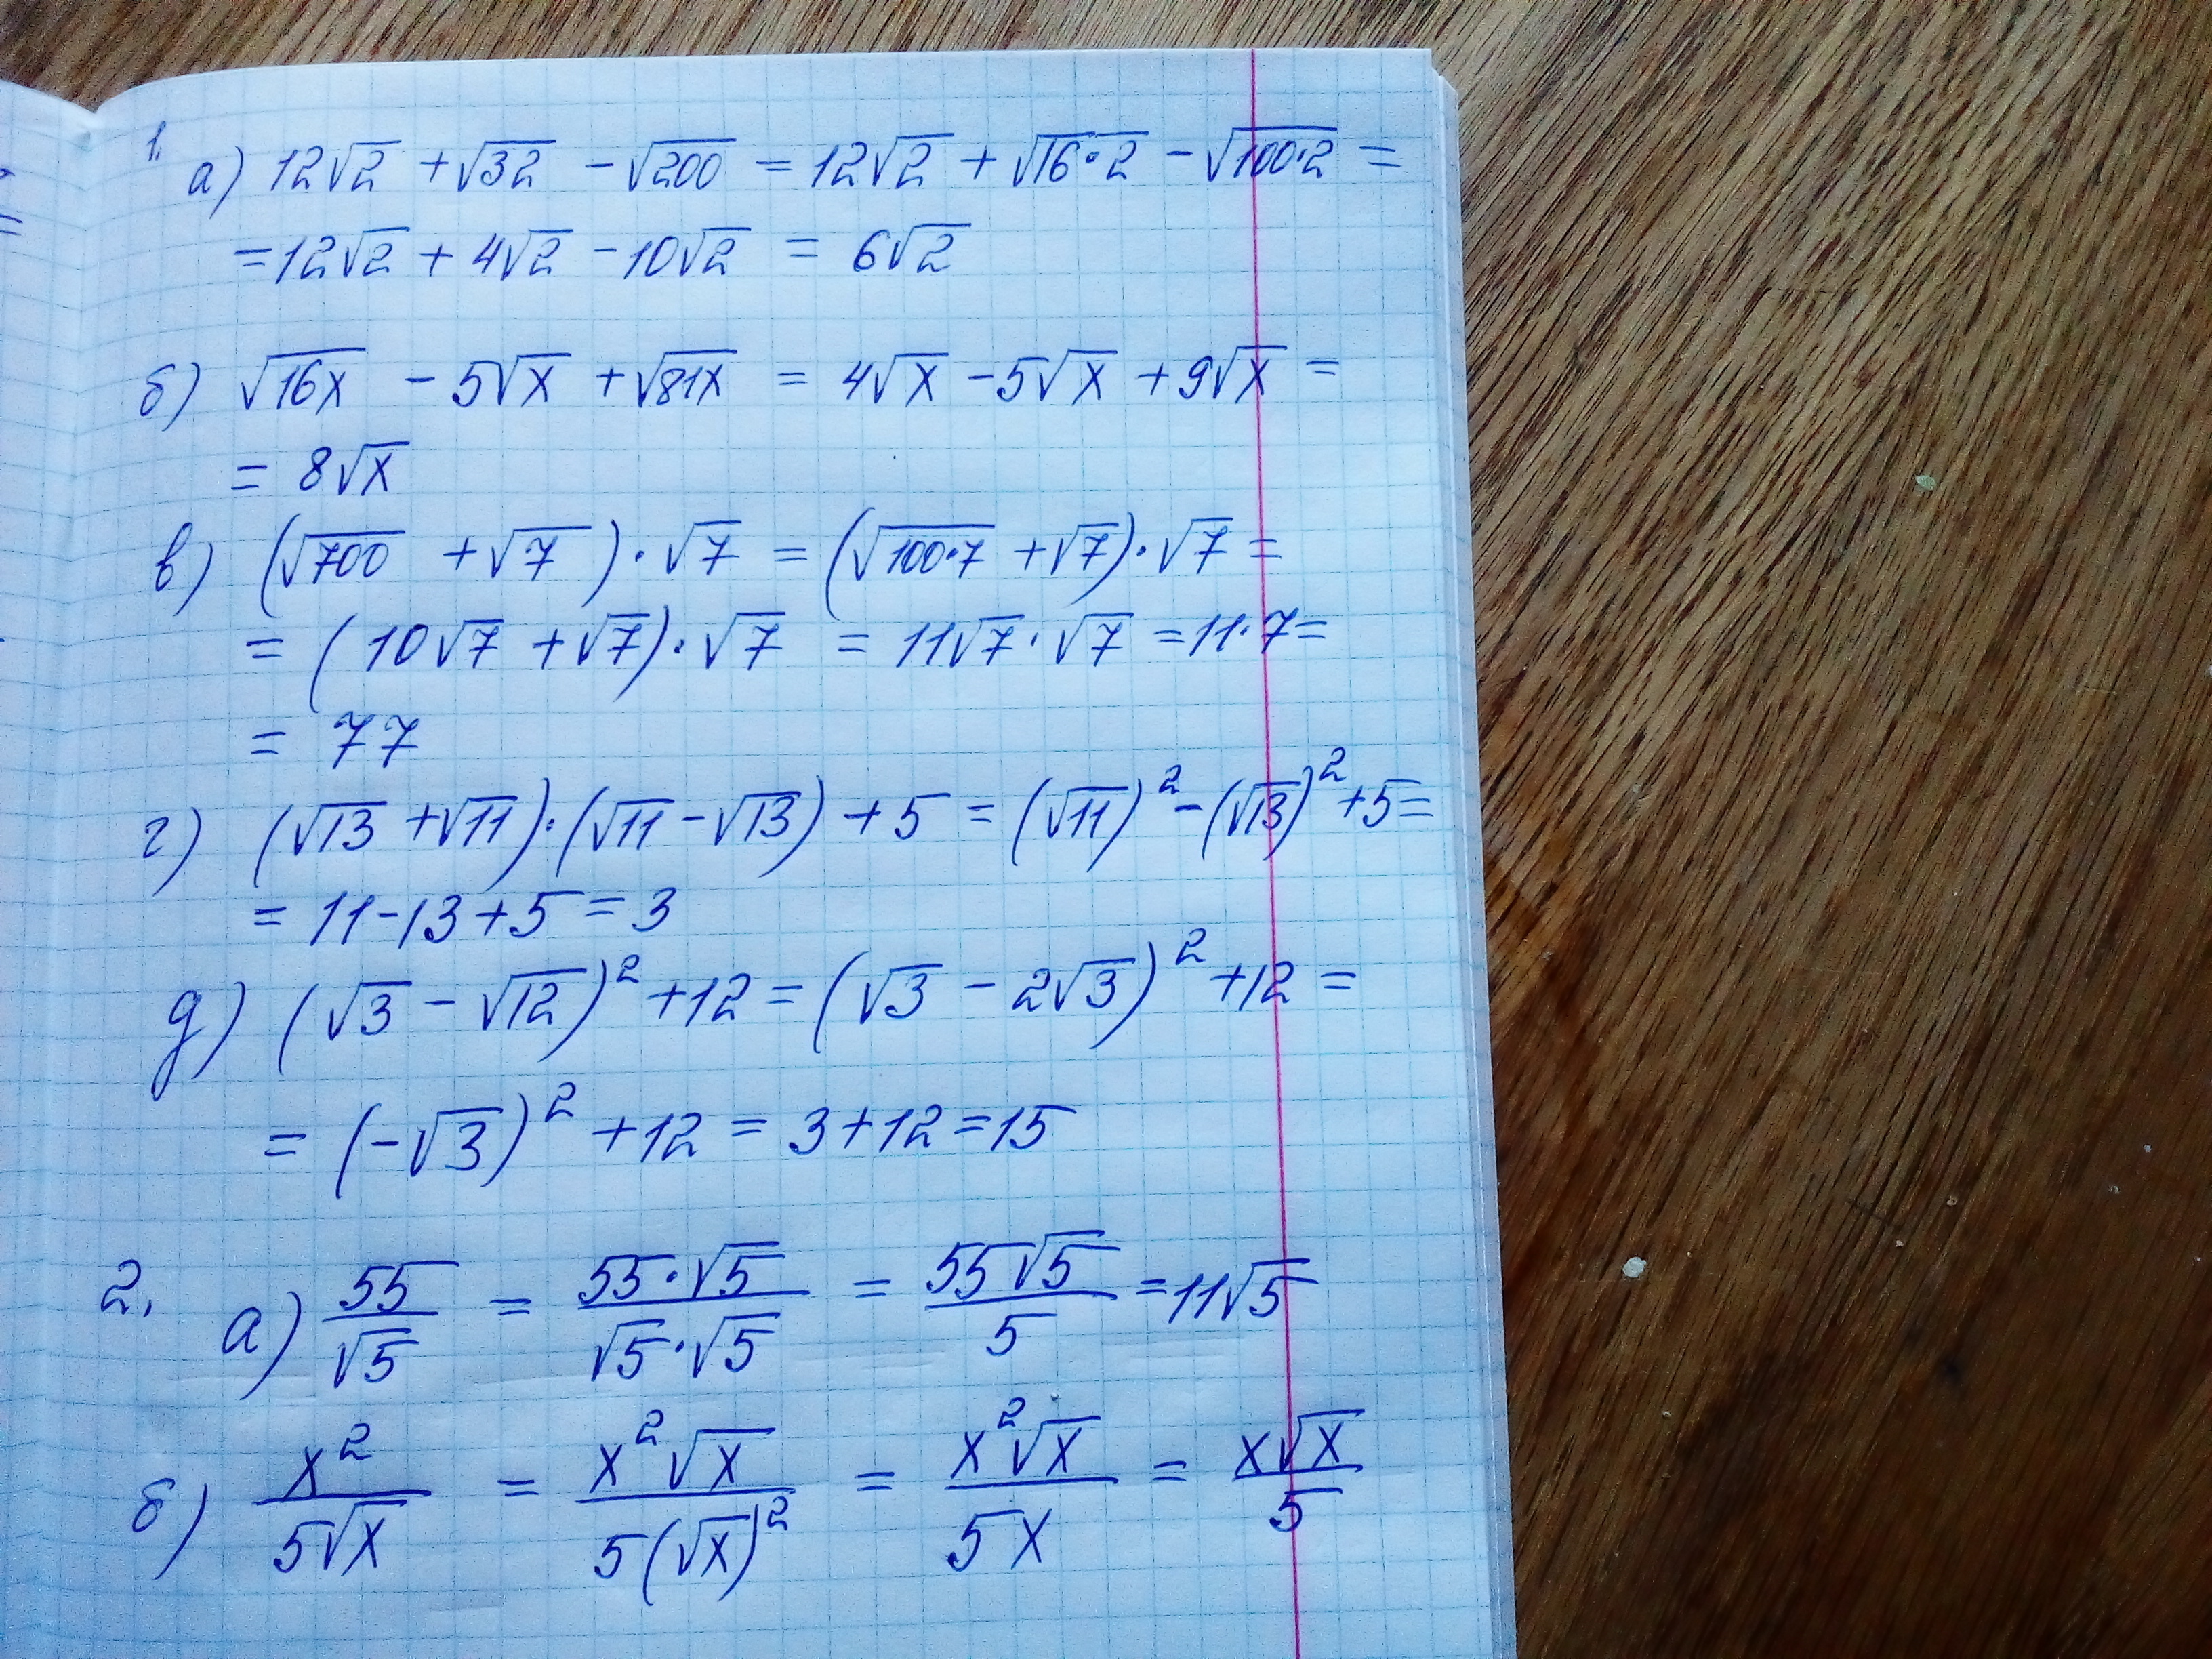 1.
а) 12√2 + √32 - √200 = 12√2 + √16·2 - √100·2 =
= 12√2 + 4√2 - 10√2 = 6√2
б) √16x - 5√x + √81x = 4√x - 5√x + 9√x =
= 8√x
в) (√700 + √7)·√7 = (√100·7 + √7)·√7 =
= (10√7 + √7)·√7 = 11√7·√7 = 11·7 =
= 77
г) (√13 + √11)·(√11 - √13) + 5 = (√11)² - (√13)² + 5 =
= 11 - 13 + 5 = 3
д) (√3 - √12)² + 12 = (√3 - 2√3)² + 12 =
= (-√3)² + 12 = 3 + 12 = 15
2. а) 55/√5 = 55·√5/√5·√5 = 55√5/5 = 11√5
б) x²/5√x = x²√x/5(√x)² = x²√x/5x = x√x/5